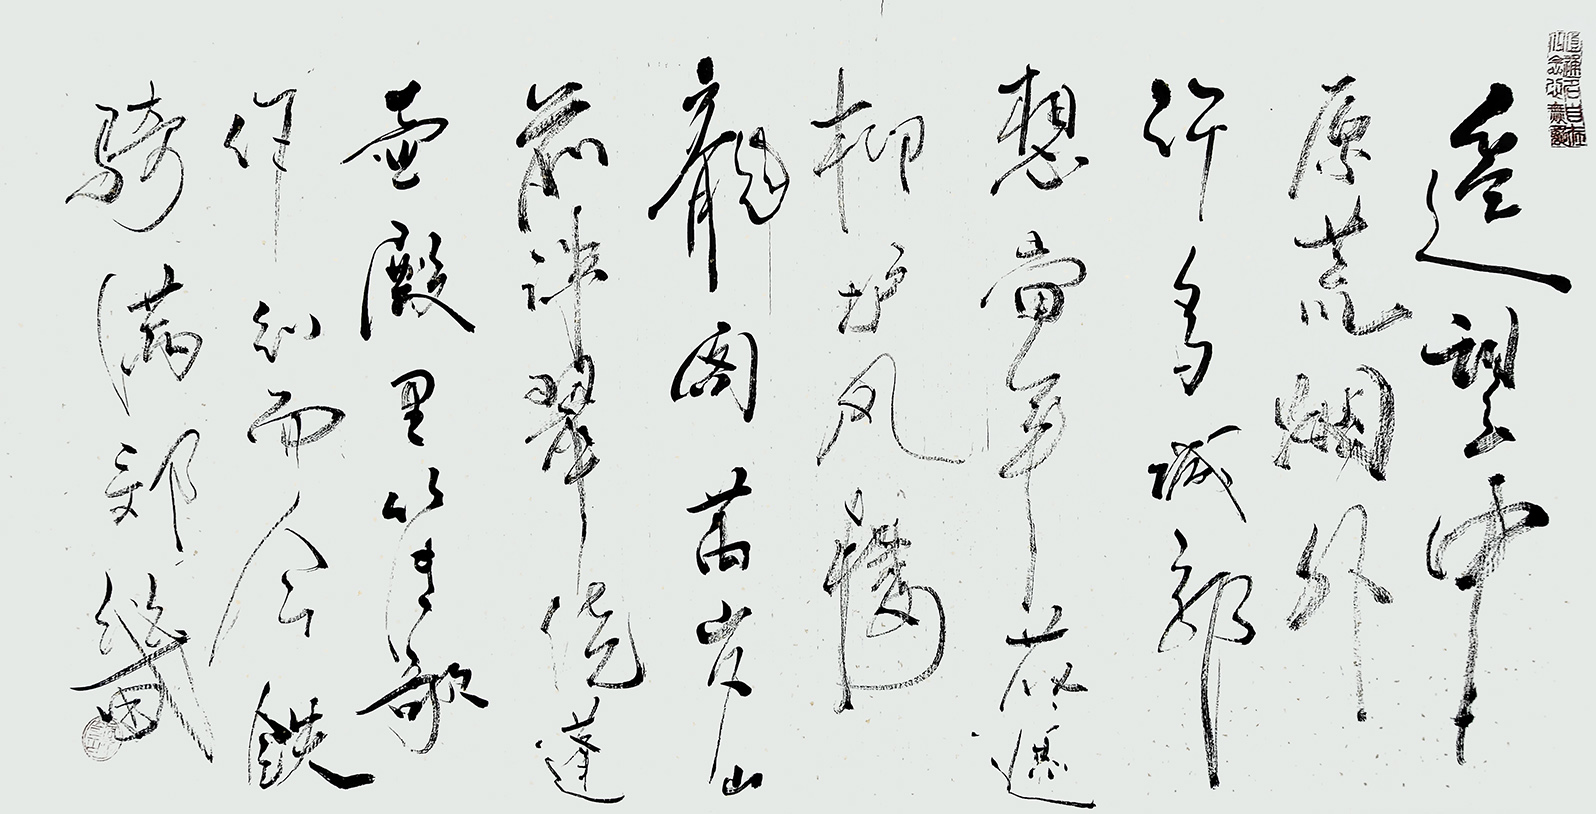 遥望中
原荒烟外
许多城郭
想當年花遮
柳护凤楼
龍阁萬岁山
前珠翠绕蓬
壶殿里笙歌
作到而今鉄
骑满郊畿